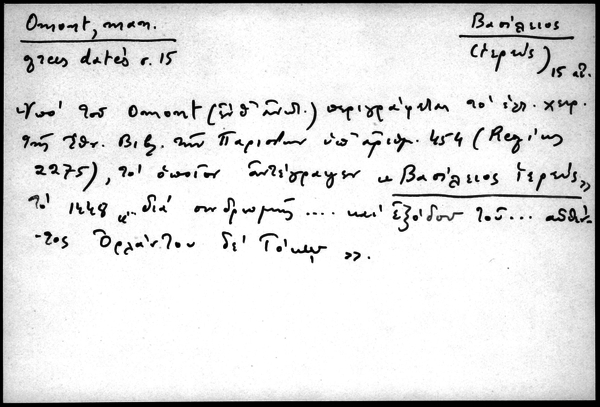 Omont, man.
grecs datés σ. 15
Βασίλειος
(ἱερεύς) 15 αἰ.
Ὑπό τοῦ Omont (ἔνθ' ἀνωτ.) περιγράφεται τό ἑλ. χειρ.
τῆς Ἐθν. Βιβ. τῶν Παρισίων ὑπ' ἀριθμ. 454 (Regius
2275), τό ὁποῖον ἀντέγραψεν «Βασίλειος ἱερεύς»
τό 1448 "διά συνδρομῆς .... καί ἐξόδου τοῦ ... αὐθέν-
-τος Ὀρλάντου δέ Τόκω».